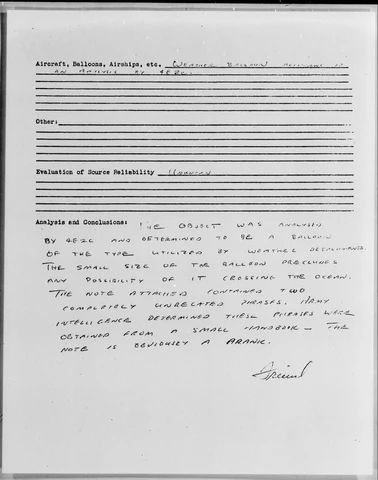 Aircraft, Balloons, Airships, etc. WEATHER BALLOON ACCORDING TO
AN ANALYSIS BY 4E2C.
Other:
Evaluation of Source Reliability UNKNOWN
Analysis and Conclusions: THE OBJECT WAS ANALYSED
BY 4E2C AND DETERMINED TO BE A BALLOON
OF THE TYPE UTILIZED BY WEATHER DETACHMENTS.
THE SMALL SIZE OF THE BALLOON PRECLUDES
ANY POSSIBILITY OF IT CROSSING THE OCEAN.
THE NOTE ATTACHED CONTAINED TWO
COMPLETELY UNRELATED PHRASES. ARMY
INTELLIGENCE DETERMINED THESE PHRASES WERE
OBTAINED FROM A SMALL HANDBOOK - THE
NOTE IS OBVIOUSLY A PRANK.